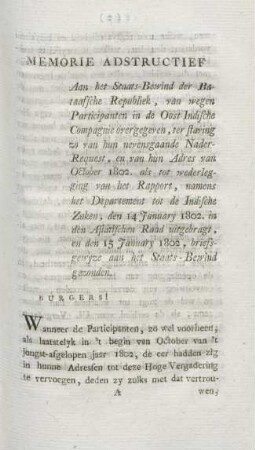 MEMORIE ADSTRUCTIEF
Aan het Staats-Bewind der Ba-
taafsche Republiek, van wegen
Participanten in de Oost Indische
Compagnie overgegeven, ter staving
zo van hun nevensgaande Nader-
Request, en van hun Adres van
October 1802. als tot wederleg-
ging van het Rapport, namens
het Departement tot de Indische
Zaken, den 14 January 1802. in
den Asiatischen Raad uitgebragt,
en den 15 January 1802, briefs-
gewyze aan het Staats-Bewind
gezonden.
BURGERS!
Wanneer de Participanten, zo wel voorheen,
als laatstelyk in 't begin van October van 't
jongst-afgelopen jaar 1802, de eer hadden zig
in hunne Adressen tot deze Hoge Vergadering
te vervoegen, deden zy zulks met dat vertrou-
A wen,